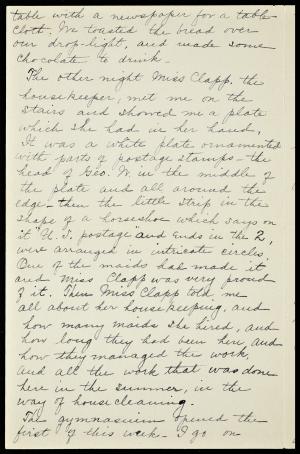 table with a newspaper for a table
cloth. We toasted the bread over
our drop-light, and made some
chocolate to drink.
The other night Miss Clapp, the
housekeeper, met me on the
stairs and showed me a plate
which she had in her hand.
It was a white plate ornamented
with parts of postage stamps - the
head of Geo. W. in the middle of
the plate and all around the
edge - then the little strip in the
shape of a horseshoe which says on
it "U.S. postage" and ends in the 2,
were arranged in intricate circles.
One of the maids had made it
and Miss Clapp was very proud
of it. Then Miss Clapp told me
all about her housekeeping, and
how many maids she hired, and
how long they had been here, and
how they managed the work,
and all the work that was done
here in the summer, in the
way of housecleaning.
The gymnasium opened the
first of this week - I go on